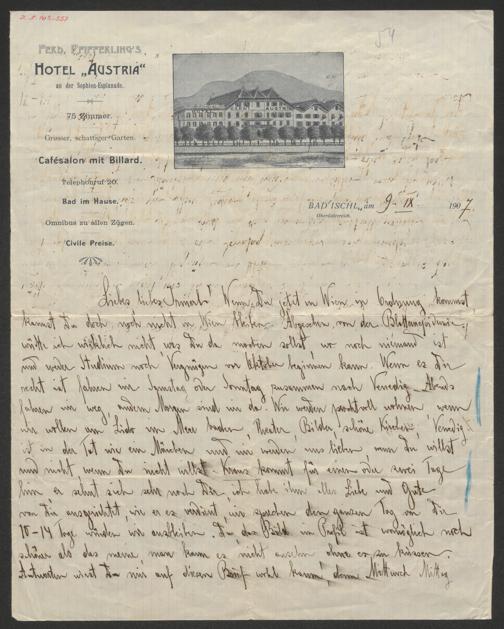 54
FERD. PFIFFERLING'S
HOTEL „AUSTRIA"
an der Sophien-Esplanade.
75 Zimmer.
Grosser, schattiger Garten.
Cafésalon mit Billard.
Telephonruf 20.
Bad im Hause.
Omnibus zu allen Zügen.
Civile Preise.
BAD ISCHL, am 9. IX. 1907.
Oberösterreich.
Liebes liebes! Wenn Du jetzt in Wien in Ordnung kommst
kannst Du doch noch nicht in Wien bleiben. Abgesehen von der
wüßte ich wirklich nicht was Du da machen sollst wo noch niemand ist
und weder Studium noch Vergnügen vor Oktober beginnen kann. Wenn es Dir
recht ist fahren wir Samstag oder Sonntag zusammen nach Venedig. Abends
fahren wir weg, andern Morgen sind wir da. Wir werden prachtvoll wohnen, wenn
wir wollen am Lido im Meer baden, Theater, Bilder, schöne Kirchen, Venedig
ist in der Tat wie ein Märchen und wir werden uns lieben, wenn Du willst
und nicht wenn Du nicht willst. kommt für einen oder zwei Tage
hin er sehnt sich sehr nach Dir ich habe ihm alles Liebe und Gute
von Dir ausgerichtet, wie er es verdient, wir sprechen den ganzen Tag von Dir
10-14 Tage würden wir ausbleiben. Du das Bild im Profil ist womöglich noch
schöner als das meine, man kann es nicht ansehn ohne es zu küssen.
Antworten wirst Du mir auf diesen Brief wohl kaum, denn Mittwoch Mittag